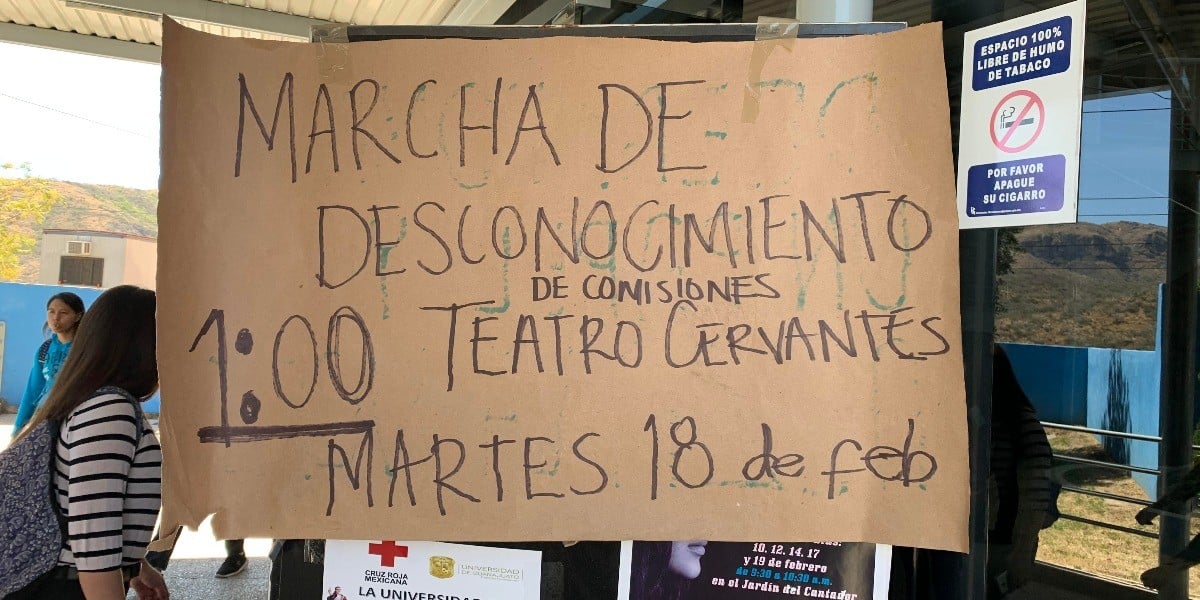 MARCHA DE
DESCONOCIMIENTO
DE COMISIONES
1:00 TEATRO CERVANTES
MARTES 18 de feb
ESPACIO 100%
LIBRE DE HUMO
DE TABACO
POR FAVOR
APAGUE
SU CIGARRO
CRUZ ROJA
MEXICANA
UNIVERSIDAD
DE GUANAJUATO
LA UNIVERSIDAD
10, 12, 14, 17
y 19 de febrero
de 9:30 a 10:30 a.m.
en el Jardín del Cantador